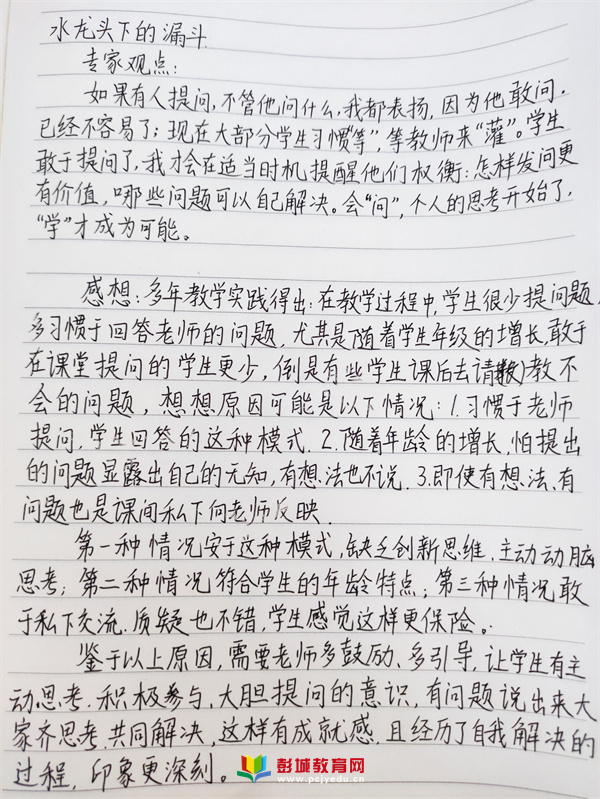 水龙头下的漏斗
专家观点:
如果有人提问,不管他问什么,我都表扬,因为他敢问,
已经不容易了;现在大部分学生习惯“等”,等教师来“灌”。学生
敢于提问了,我才会在适当时机提醒他们权衡:怎样发问更
有价值,哪些问题可以自己解决。会“问”,个人的思考开始了,
“学”才成为可能。
感想:多年教学实践得出:在教学过程中,学生很少提问题,
多习惯于回答老师的问题,尤其是随着学生年级的增长,敢于
在课堂提问的学生更少,倒是有些学生课后去请教不
会的问题,想想原因可能是以下情况:1.习惯于老师
提问,学生回答的这种模式.2.随着年龄的增长,怕提出
的问题显露出自己的无知,有想法也不说.3.即使有想法、有
问题也是课间私下向老师反映.
第一种情况安于这种模式,缺乏创新思维,主动动脑
思考;第二种情况符合学生的年龄特点;第三种情况敢
于私下交流.质疑也不错,学生感觉这样更保险。
鉴于以上原因,需要老师多鼓励、多引导,让学生有主
动思考.积极参与,大胆提问的意识,有问题说出来大
家齐思考.共同解决,这样有成就感.且经历了自我解决的
过程,印象更深刻。
彭城教育网
www.pcjyedu.cn